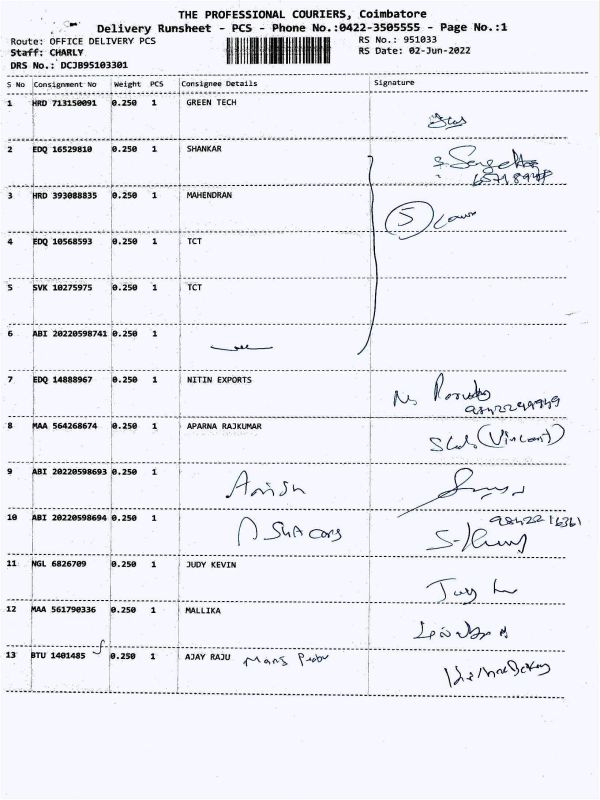 THE PROFESSIONAL COURIERS, Coimbatore
Delivery Runsheet - PCS - Phone No.:0422-3505555 - Page No.:1
Route: OFFICE DELIVERY PCS RS No.: 951033
Staff: CHARLY RS Date: 02-Jun-2022
DRS No.: DCJB95103301
S No Consignment No Weight PCS Consignee Details Signature
1 HRD 713150091 0.250 1 GREEN TECH
2 EDQ 16529810 0.250 1 SHANKAR
3 HRD 393088835 0.250 1 MAHENDRAN
5
4 EDQ 10568593 0.250 1 TCT
5 SVK 10275975 0.250 1 TCT
6 ABI 20220598741 0.250 1
7 EDQ 14888967 0.250 1 NITIN EXPORTS
8 MAA 564268674 0.250 1 APARNA RAJKUMAR (Vincent)
9 ABI 20220598693 0.250 1 Anish
10 ABI 20220598694 0.250 1 9842216361
11 NGL 6826709 0.250 1 JUDY KEVIN
12 MAA 561790336 0.250 1 MALLIKA
13 BTU 1401485 0.250 1 AJAY RAJU